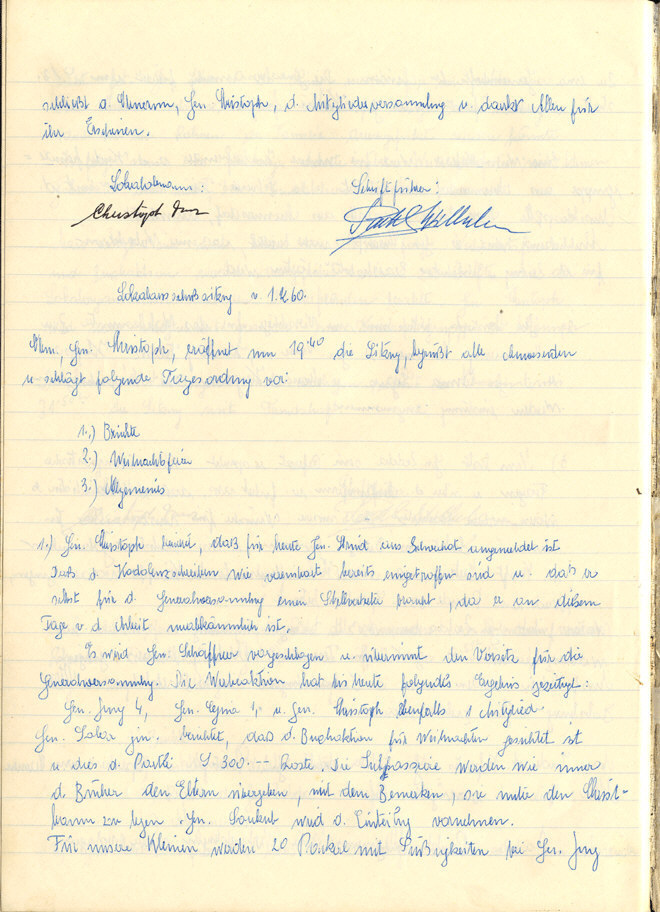 schließt d. Obmann, Gen. Christoph, d. Mitgliederversammlung u. dankt Allen für
ihr Erscheinen.
Lokalobmann: Schriftführer:
Christoph
Lokalausschußsitzung v. 1.12.60.
Obm., Gen. Christoph, eröffnet um 19.40 die Sitzung, begrüßt alle Anwesenden
u. schlägt folgende Tagesordnung vor:
1.) Berichte
2.) Weihnachtsfeier
3.) Allgemeines
1.) Gen. Christoph, daß für heute Gen. aus Schwechat angemeldet ist
Daß d. wie vereinbart bereits eingetroffen sind u. daß er
selbst für d. Generalversammlung einen Stellvertreter braucht, da er an diesem
Tage v d Arbeit unabkömmlich ist.
Es wird Gen. Schaffner vorgeschlagen u. übernimmt den Vorsitz für die
Generalversammlung. Die Werbeaktion hat bis heute folgendes Ergebnis gezeitigt:
Gen. Jung 4, Gen. u. Gen. Christoph ebenfalls 1 Mitglied.
Gen. jun. berichtet, das d. Buchaktion für Weihnachten gesichtet ist
u. dies d. Partei S 300.-- koste. Die werden wie immer
d. Bücher den Eltern übergeben, mit dem Bemerken, sie unter den Christ-
baum zu legen. Gen. wird d. Einteilung vornehmen.
Für unsere Kleinen werden 20 Packel mit Süßigkeiten bei Gen. Jung